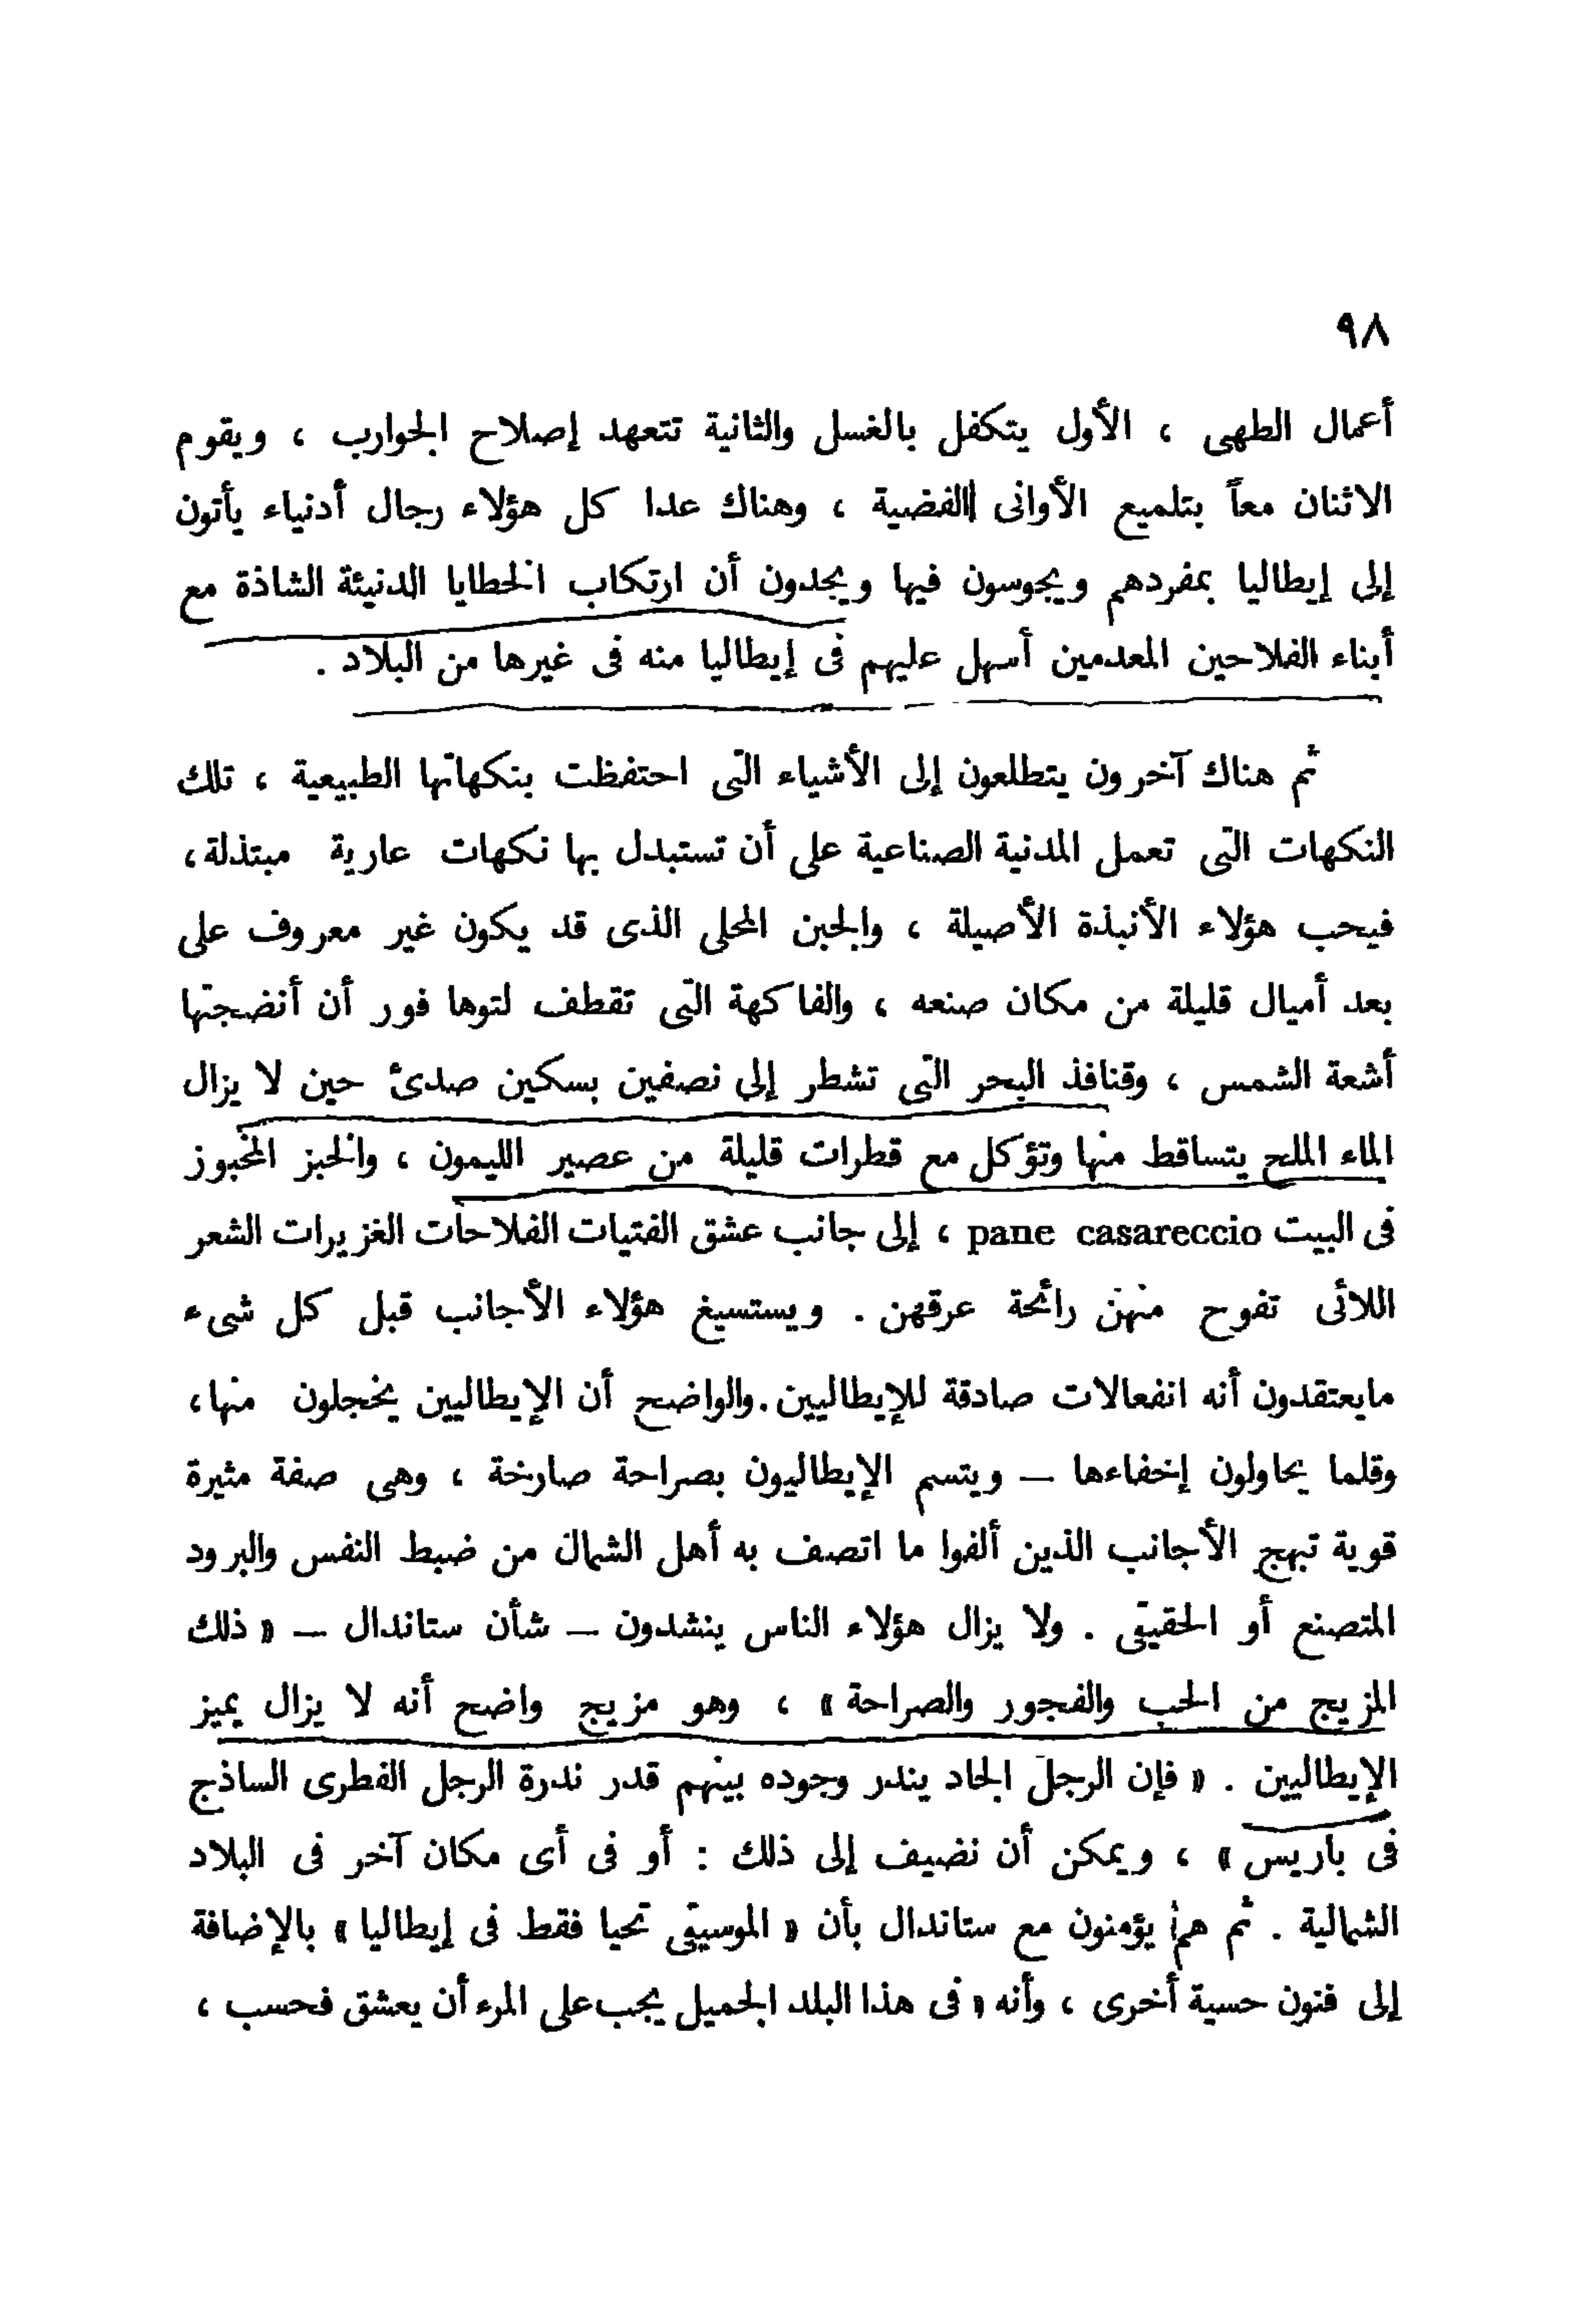 ٩٨
أعمال الطهى ، الأول يتكفل بالغسل والثانية تتعهد إصلاح الجوارب ، ويقوم
الاثنان معاً بتلميع الأوانى الفضية ، وهناك عدا كل هؤلاء رجال أدنياء يأتون
إلى إيطاليا بمفردهم ويجوسون فيها ويجدون أن ارتكاب الخطايا الدنيئة الشاذة مع
أبناء الفلاحين المعدمين أسهل عليهم فى إيطاليا منه فى غيرها من البلاد .
ثم هناك آخرون يتطلعون إلى الأشياء التى احتفظت بنكهاتها الطبيعية ، تلك
النكهات التى تعمل المدنية الصناعية على أن تستبدل بها نكهات عارية مبتذلة ،
فيحب هؤلاء الأنبذة الأصيلة ، والجبن المحلى الذى قد يكون غير معروف على
بعد أميال قليلة من مكان صنعه ، والفاكهة التى تقطف لتوها فور أن أنضجتها
أشعة الشمس ، وقنافذ البحر التى تشطر إلى نصفين بسكين صدئ حين لا يزال
الماء الملح يتساقط منها وتؤكل مع قطرات قليلة من عصير الليمون ، والخبز المخبوز
فى البيت pane casareccio ، إلى جانب عشق الفتيات الفلاحات الغزيرات الشعر
اللائى تفوح منهن رائحة عرقهن . ويستسيغ هؤلاء الأجانب قبل كل شىء
مايعتقدون أنه انفعالات صادقة للإيطاليين . والواضح أن الإيطاليين يخجلون منها ،
وقلما يحاولون إخفاءها – ويتسم الإيطاليون بصراحة صارخة ، وهى صفة مثيرة
قوية تبهج الأجانب الذين ألفوا ما اتصف به أهل الشمال من ضبط النفس والبرود
المتصنع أو الحقيقى . ولا يزال هؤلاء الناس ينشدون – شأن ستاندال – « ذلك
المزيج من الحب والفجور والصراحة » ، وهو مزيج واضح أنه لا يزال يميز
الإيطاليين . « فإن الرجل الجاد يندر وجوده بينهم قدر ندرة الرجل الفطرى الساذج
فى باريس » ، ويمكن أن نضيف إلى ذلك : أو فى أى مكان آخر فى البلاد
الشمالية . ثم هم يؤمنون مع ستاندال بأن « الموسيقى تحيا فقط فى إيطاليا » بالإضافة
إلى فنون حسية أخرى ، وأنه « فى هذا البلد الجميل يجب على المرء أن يعشق فحسب ،